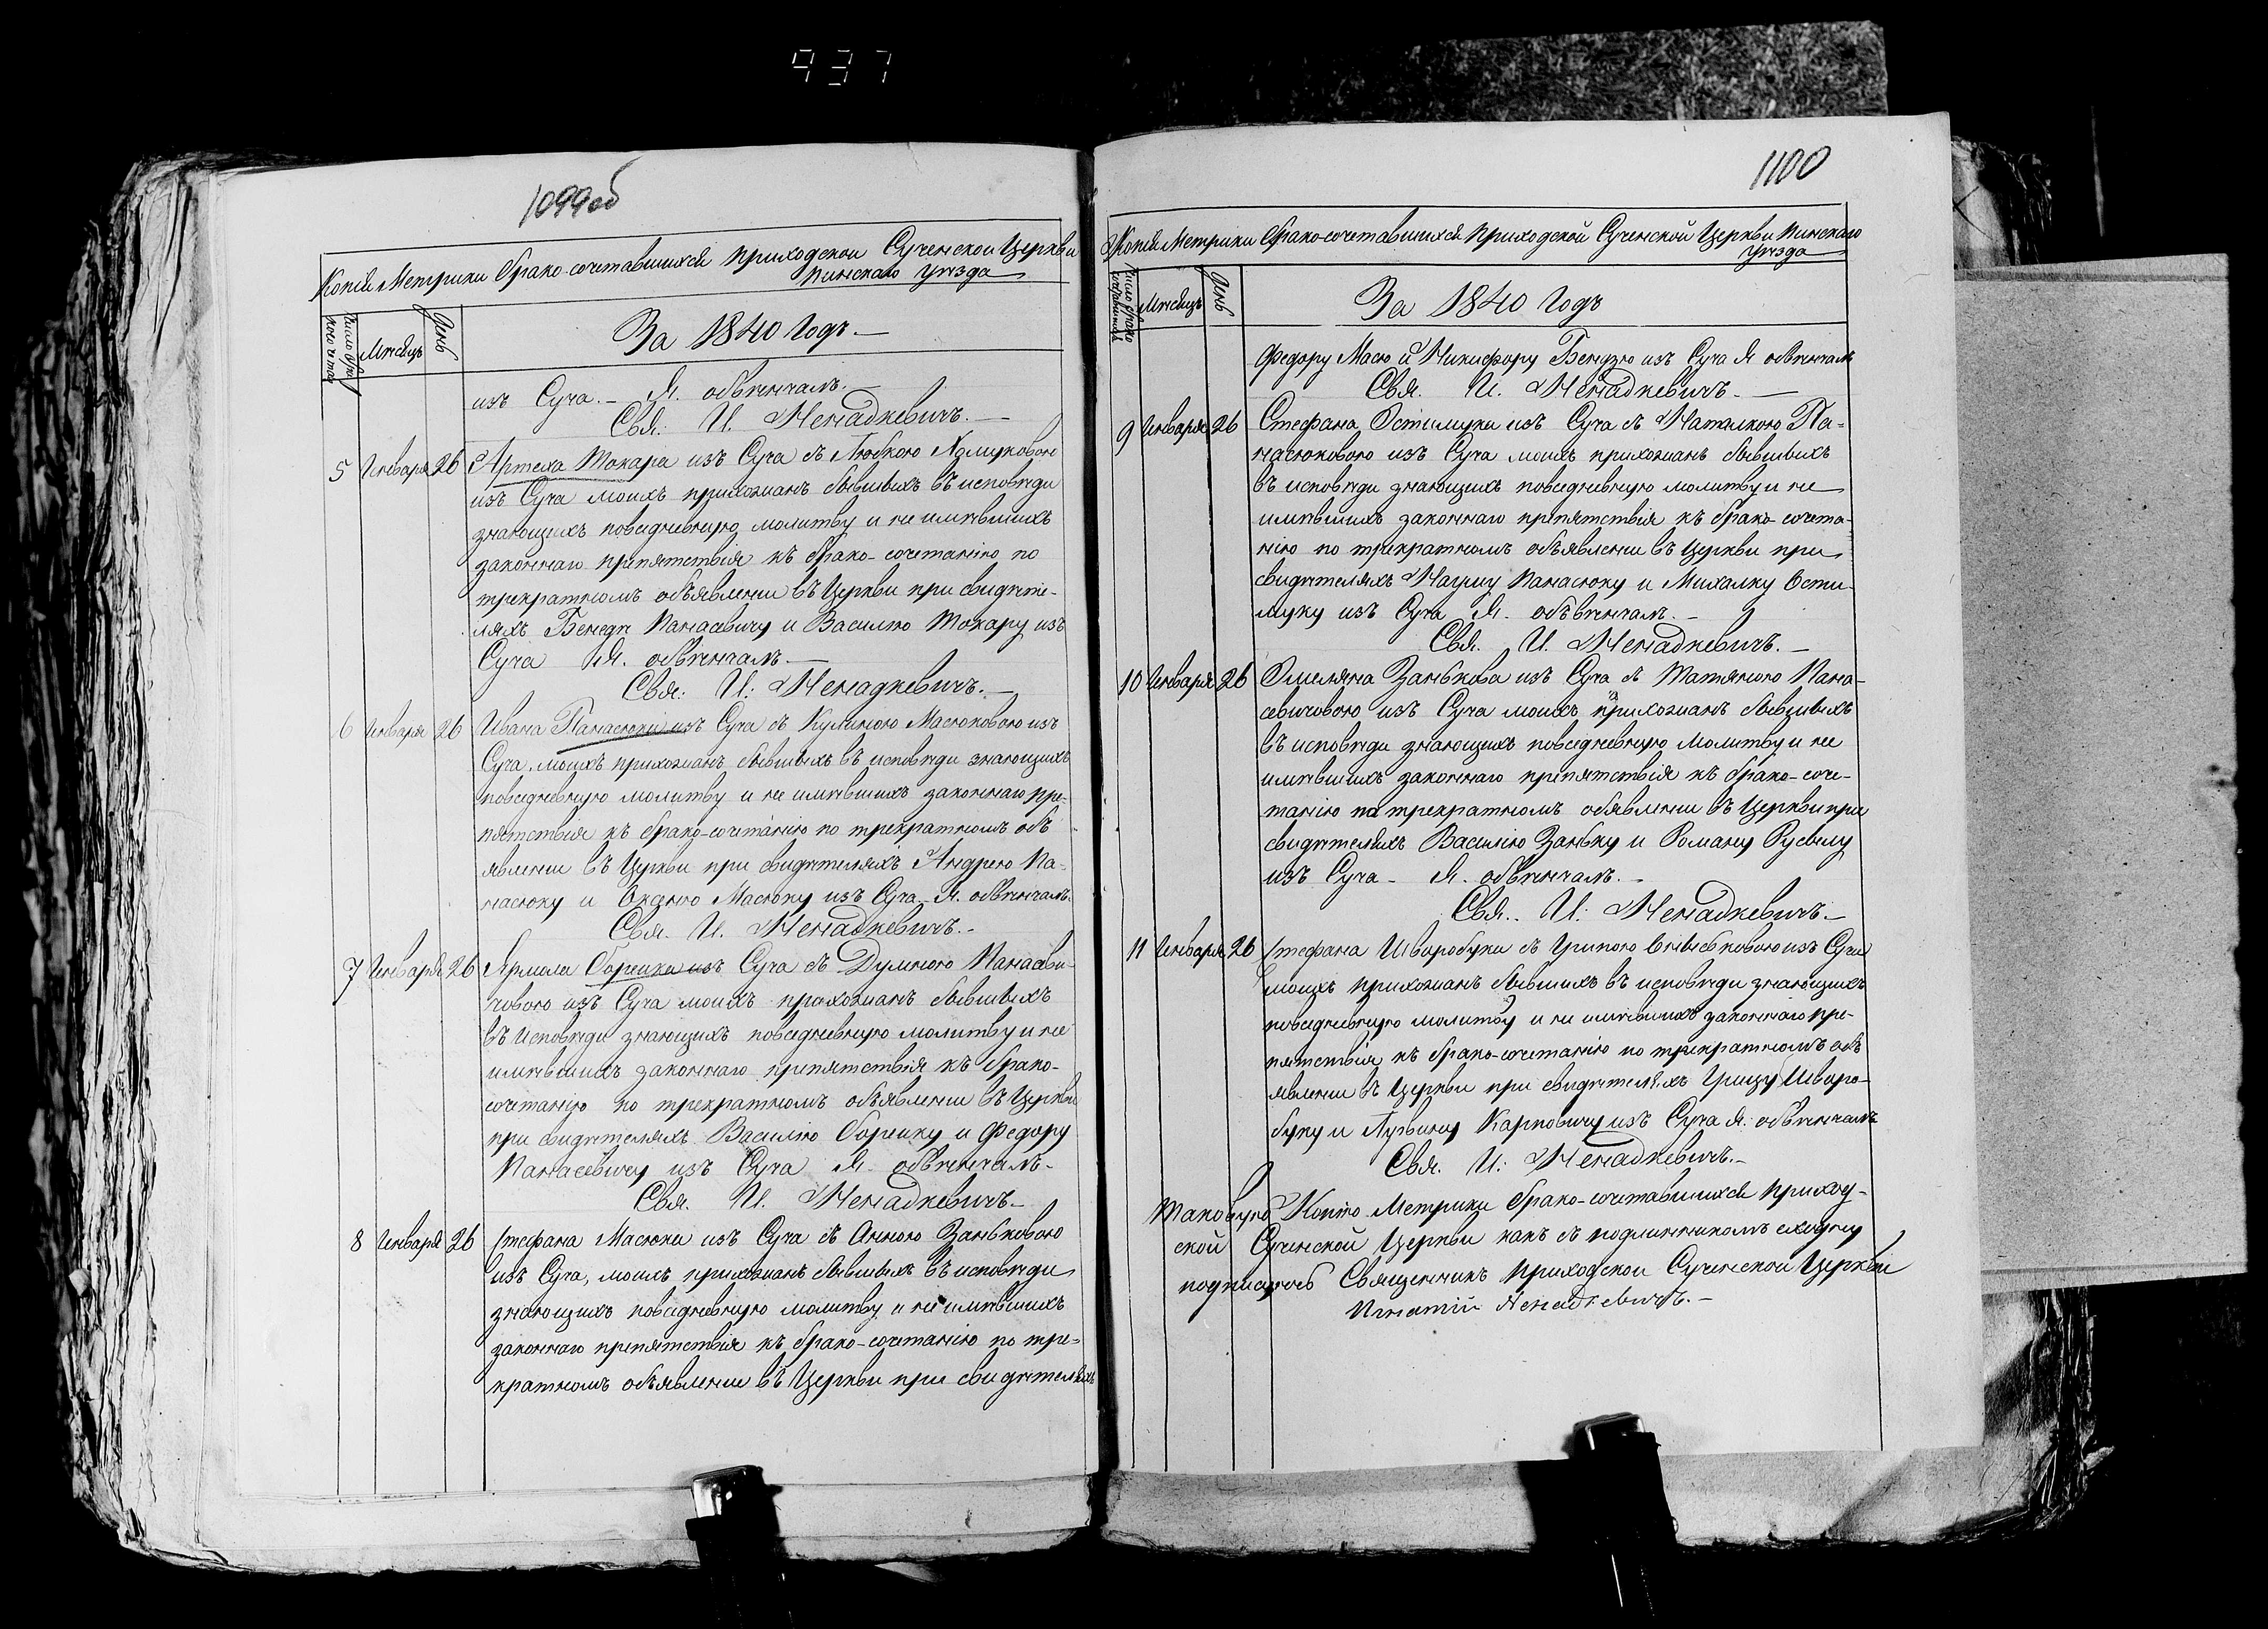 937
1099об
Копія Метрики брако-сочетавшихся приходской Сученской Церкви
Пинскаго уѣзда
Мѣсяцъ
День
За 1840 годъ.—
изъ Суча.— Я. обвѣнчалъ.—
Свя: И. Ненадкевичъ.—
5 Января 26 Артеха Токара изъ Суча съ Любкою
изъ Суча моихъ прихожанъ бывшихъ въ исповѣди
знающихъ повседневную молитву и не имѣвшихъ
законнаго препятствія къ брако-сочетанію по
трекратномъ объявленіи въ Церкви при свидѣте-
ляхъ Бенедѣ Панасевичу и Василію Токару изъ
Суча Я. обвѣнчалъ.—
Свя: И: Ненадкевичъ.—
6 Января 26 Ивана Панасюка изъ Суча съ Кулиною Масюковою изъ
Суча, моихъ прихожанъ бывшихъ въ исповѣди знающихъ
повседневную молитву и не имѣвшихъ законнаго пре-
пятствія къ брако-сочетанію по трекратномъ объ
явленіи въ Церкви при свидѣтеляхъ Андрею Па-
насюку и Масюку изъ Суча Я. обвѣнчалъ.
Свя. И. Ненадкевичъ.-
7 Января 26 Ярмола Борейка изъ Суча съ Думною Панасеви-
човою изъ Суча моихъ прихожанъ бывшихъ
въ исповѣди знающихъ повседневную молитву и не
имѣвшихъ законнаго препятствія къ брако-
сочетанію по трекратномъ объявленіи въ Церкви
при свидѣтеляхъ Василію Борейку и Федору
Панасевичу изъ Суча Я. обвѣнчалъ.-
Свя. И. Ненадкевичъ-
8 Января 26 Стефана Масюка изъ Суча съ Анною Заньковою
изъ Суча, моихъ прихожанъ бывшихъ въ исповѣди
знающихъ повседневную молитву и не имѣвшихъ
законнаго препятствія къ брако-сочетанію по тре-
кратномъ объявленіи въ Церкви при свидѣтеляхъ
1100
Копія Метрики брако-сочетавшихся приходской Сученской Церкви Пинскаго
уѣзда
Мѣсяцъ
День
За 1840 годъ
Федору Масю и Никифору Бенедзю изъ Суча Я обвѣнчалъ
Свя. И. Ненадкевичъ.—
9 Января 26 Стефана Остимука изъ Суча съ Наталкою Па-
насюковою изъ Суча моихъ прихожанъ бывшихъ
въ исповѣди знающихъ повседневную молитву и не
имѣвшихъ законнаго препятствія къ брако-сочета-
нію по трекратномъ объявленіи въ Церкви при
свидѣтеляхъ Науму Панасюку и Михалку Ости-
муку изъ Суча Я. объвѣнчалъ.-
Свя. И. Ненадкевичъ.—
10 Января 26 Омеляна Занькова изъ Суча съ Татяною Пана-
севичовою изъ Суча моихъ прихожанъ бывшихъ
въ исповѣди знающихъ повседневную молитву и не
имѣвшихъ законнаго препятствія къ брако-соче-
танію по трекратномъ обявленіи въ Церкви при
свидѣтеляхъ Василію Заньку и Роману
изъ Суча- Я. обвѣнчалъ.-
Свя. И: Ненадкевичъ.—
11 Января 26 Стефана Шворобука съ изъ Суча
моихъ прихожанъ бывшихъ въ исповѣди знающихъ
повседневную молитву и не имѣвшихъ законнаго пре-
пятствія къ брако-сочетанію по трекратномъ объ
явленіи въ Церкви при свидѣтеляхъ Грицу Шворо-
буку и Карповичу изъ Суча Я. обвѣнчалъ
Свя. И: Ненадкевичъ.-
Таковую Копію Метрики брако-сочетавшихся приход-
ской Сученской Церкви какъ съ подлинникомъ сходну
подписуюсь Священникъ приходской Сученской Церкви
Игнатій Ненадкевичъ.-